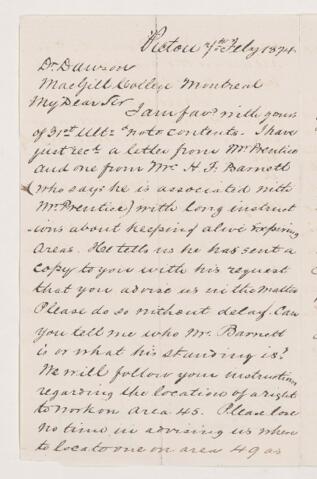 Pictou 7th Feby 1874.
Dr. Dawson
MacGill College Montreal
My Dear Sir
I am fav'd with yours
of 31st Ult: & note contents. I have
just recd a letter from Mr Prentice
and one from Mr. H. F. Barnett
(who says he is associated with
Mr. Prentice) with long instruct
ions about keeping alive Expiring
Areas. He tells us he has sent a
copy to you with his request
that you advise us in the matter
Please do so without delay. Can
you tell me who Mr. Barnett
is or what his standing is?
We will follow your instructions
regarding the location of a right
to work on area 45. Please lose
no time in advising us where
to locate one on area 49 as